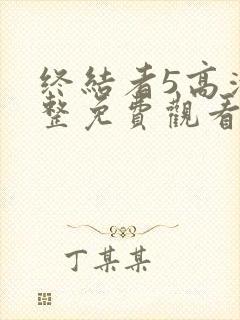 终结者5高清
整免費觀看
丁某某